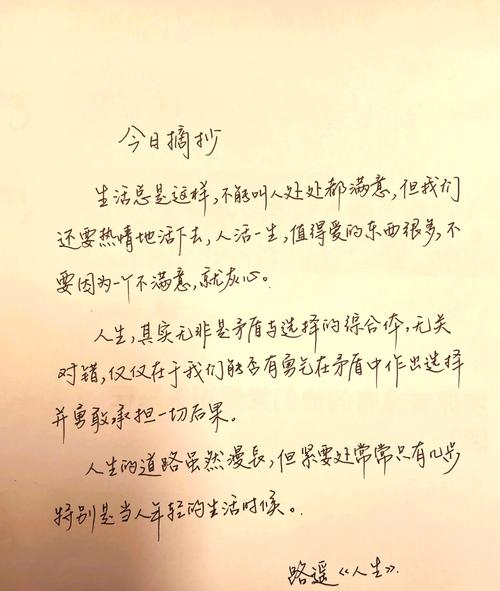 今日摘抄
生活总是这样,不能叫人处处都满意,但我们
还要热情地活下去,人活一生,值得爱的东西很多,不
要因为一丫不满意,就灰心。
人生,其实无非是矛盾与选择的综合体,无关
对错,仅仅在于我们能否有勇气在矛盾中作出选择
并勇敢承担一切后果。
人生的道路虽然漫長,但紧要处常常只有几步
特别是当人年轻的生活时候。
路遥《人生》.